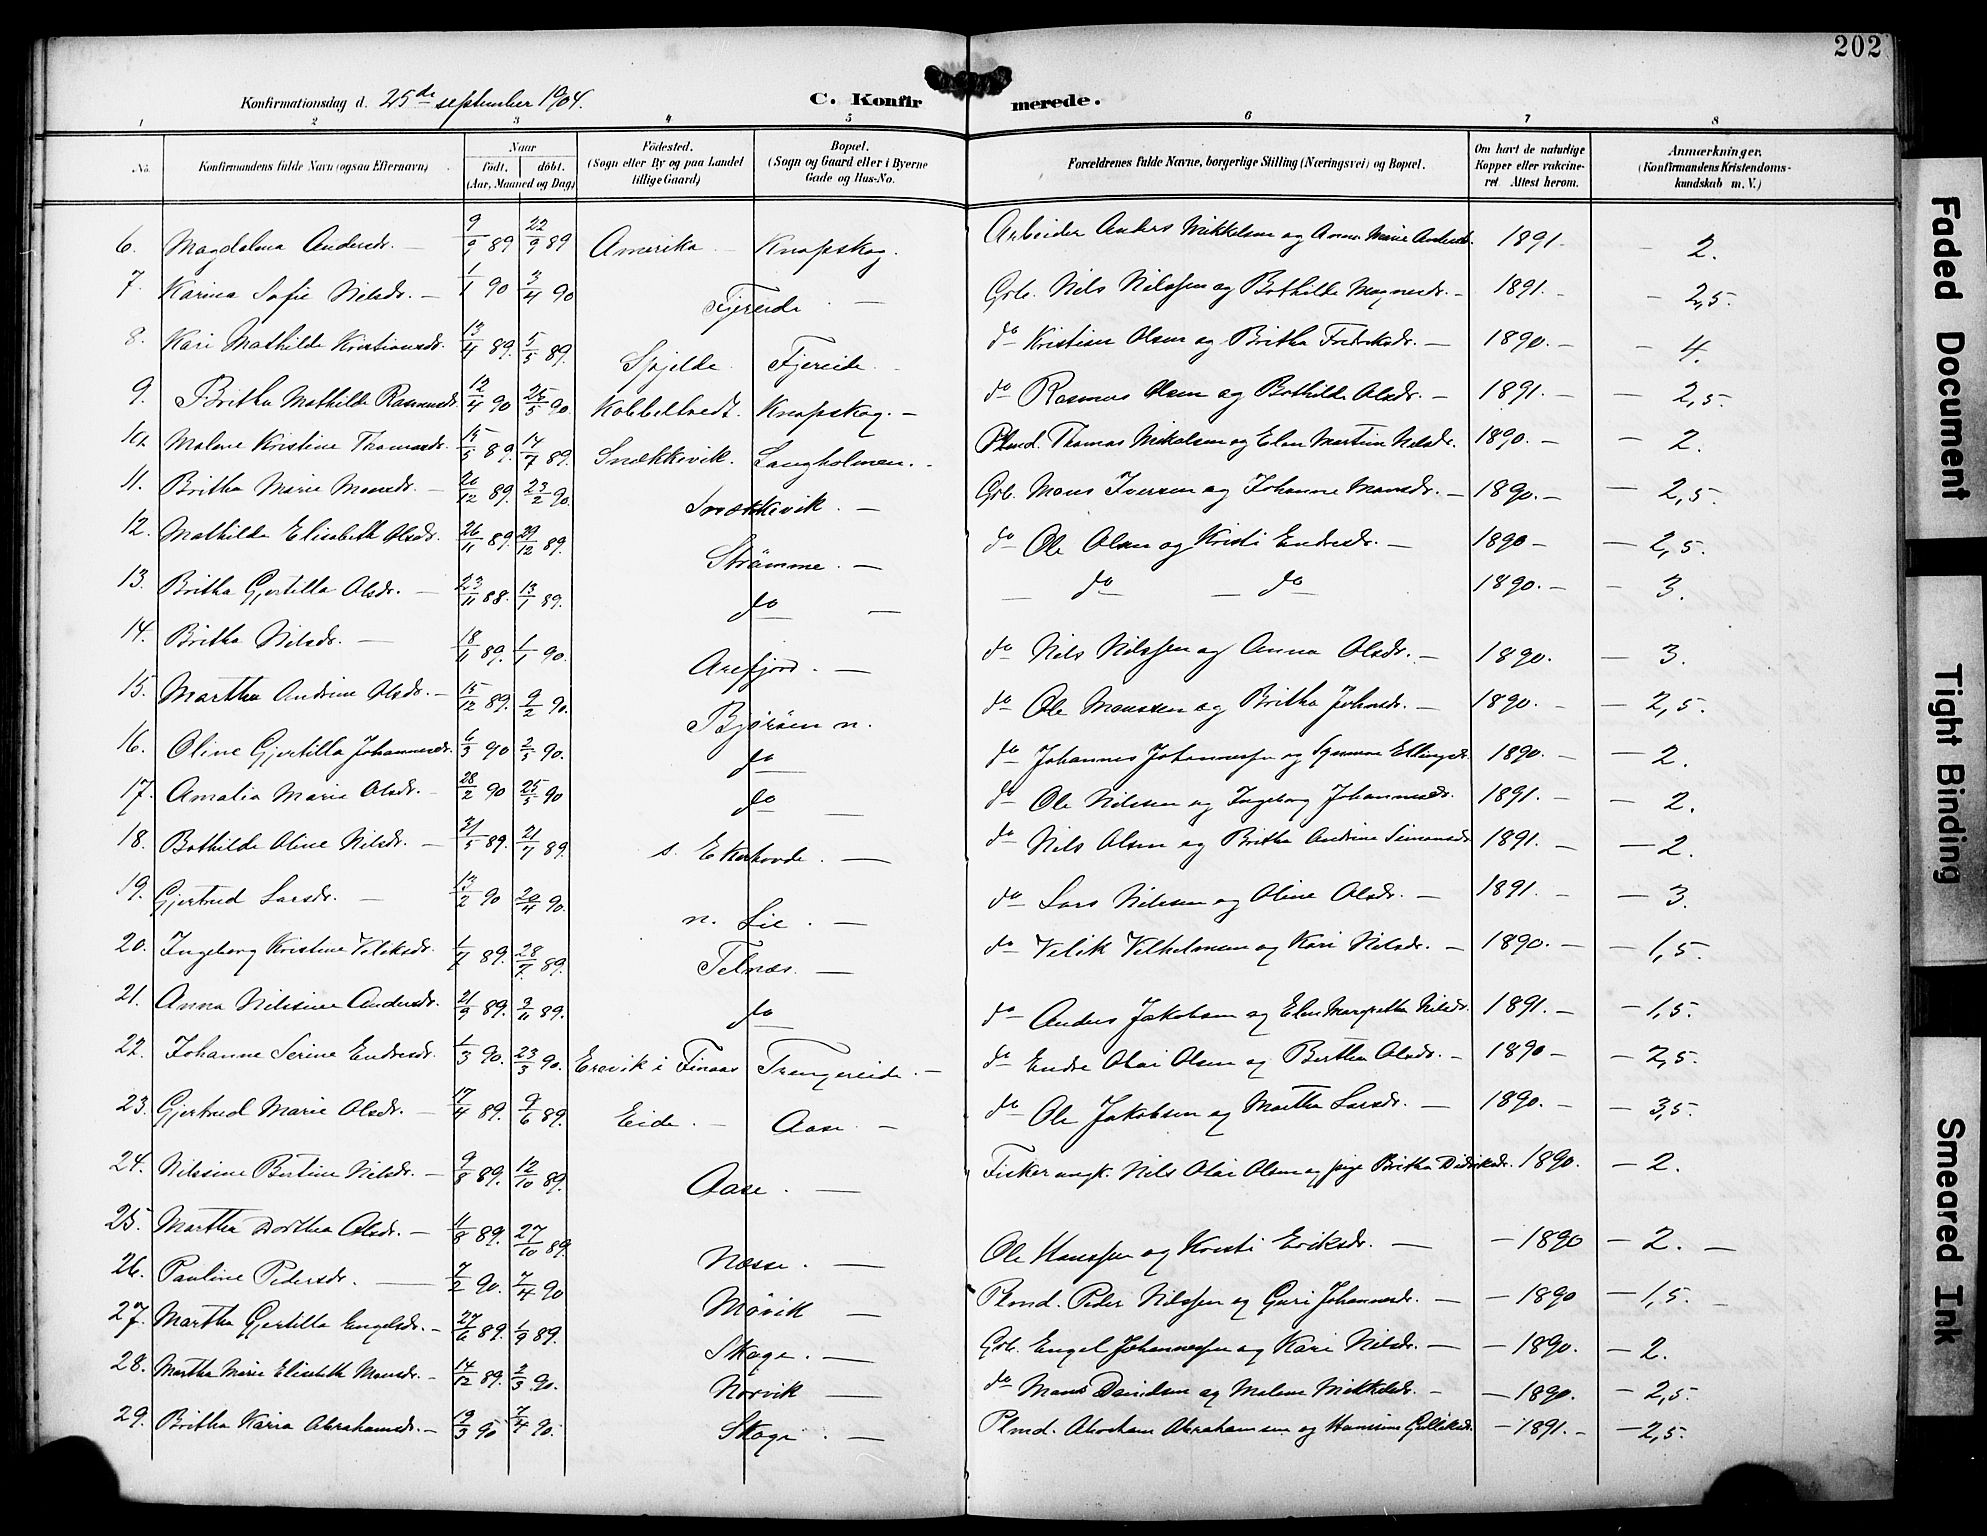 202
Konfirmationsdag d. 25de september 1904.
C. Konfirmerede.
1 2 3 4 5 6 7 8
No.
Konfirmandens fulde Navn (ogsaa Efternavn)
Naar
født. døbt.
(Aar, Maaned og Dag)
Fødested.
(Sogn eller By og paa Landet
tillige Gaard)
Bopæl.
(Sogn og Gaard eller i Byerne
Gade og Hus-No.
Forældrenes fulde Navne, borgerlige Stilling (Næringsvei) og Bopæl.
Om havt de naturlige
Kopper eller vakcine-
ret. Attest herom.
Anmærkninger.
(Konfirmandens Kristendoms-
kundskab m. V.)
6. Magdalena Andersdr. — 9/9 89 22/9 89 Amerika — Knapskog. Arbeider Anders Mikkelsen og Anna Marie Andersdr. 1891. — 2.
7. Karina Sofie Nilsdr. — 1/1 90 3/4 90 Fjereide — Grb. Nils Nilssen og Bothilde Magnesdr. — 1891. — 2,5.
8. Kari Mathilde Kristiansdr. 13/4 89. 5/5 89. Spjelde Fjereide do Kristian Olsen og Britha Fredriksdr. — 1890. — 4.
9. Britha Mathilde Rasmusdr. 12/4 90 26/5 90. Kobbeltvedt. Knapskog. — do Rasmus Olsen og Bothilde Olsdr. — 1891. — 2,5.
10. Malene Kristine Thomasdr. 15/5 89. 14/7 89. Snekkevik. Langholmen. Plmd. Thomas Mikalsen og Elen Martine Nilsdr. 1890. — 2.
11. Britha Marie Monsdr. — 20/12 89. 23/2 90. Snekkevik. — Grb. Mons Iversen og Johanne Monsdr. — 1890. — 2,5.
12. Mathilde Elisabeth Olsdr. 26/11 89. 29/12 89. Strømme. — do Ole Olsen og Kristi Endresdr. — 1890 — 2,5.
13. Britha Gjertilla Olsdr. — 23/11 88. 13/1 89. do — — do — do 1890. — 3.
14. Britha Nilsdr. — 18/11 89. 1/1 90. Arefjord. — do Nils Nilssen og Anna Olsdr. — 1890. — 3.
15. Martha Andrine Olsdr. — 15/12 89. 9/2 90. Bjørøen n. do Ole Monssen og Britha Johnsdr. — 1890. — 2,5.
16. Oline Gjertilla Johannesdr. 6/3 90 2/5 90. do do Johannes Johannessen og Ellingsdr. 1890. — 2.
17. Amalia Marie Olsdr. — 28/2 90 25/5 90 do — do Ole Nilssen og Ingeborg Johannesdr. 1891. — 2.
18. Bothilde Oline Nilsdr. — 31/5 89. 21/7 89. s. Ekerhovde. — do Nils Olsen og Britha Andrine Simonsdr 1891. — 2.
19. Gjertrud Larsdr. — 13/2 90 20/4 90. n. Lie. — do Lars Nilssen og Oline Olsdr. — 1891. — 3.
20. Ingeborg Kristine Viliksdr. 1/7 89. 28/7 89. Telnæs. — do Velik Vilhelmsen og Kari Nilsdr. — 1890. — 1,5.
21. Anna Nilssine Andersdr. 21/9 89. 3/11 89. do — do Anders Jakobsen og Elen Margretha Nilsdr. 1891. — 1,5.
22. Johanne Serine Endresdr. 1/3 90. 23/3 90. Erevik i Finaas Trengereide. — do Endre Olai Olsen og Bertha Olsdr. — 1890 — 2,5.
23. Gjertrud Marie Olsdr. — 17/4 89. 9/6 89. Eide. — Aase. — do Ole Jakobsen og Martha Larsdr. — 1890. — 3,5.
24. Nilssine Bertine Nilsdr. — 9/8 89. 12/10 89. Aase. — Fisker ungk. Nils Olai Olsen og pige Britha Didriksdr. 1890. — 2.
25. Martha Dorthea Olsdr. — 11/8 89. 27/10 89. Næsse. — Ole Hanssen og Kristi Eriksdr. — — 1890 — 2. —
26. Pauline Pedersdr. — 7/2 90. 7/4 90 Møvik — Plmd. Peder Nilssen og Guri Johannesdr. — — 1890 — 1,5. —
27. Martha Gjertilla Engelsdr. — 27/6 89. 1/9 89. Skage. — Grb. Engel Johannessen og Kari Nilsdr. — — 1890. — 2.
28. Martha Marie Elisabeth Monsdr. — 14/12 89. 2/3 90. Norvik — do Mons Davidsen og Malene Mikkelsdr. — — 1890. — 2,5.
29. Britha Karia Abrahamsdr. — 19/3 90 7/4 90. Skage. — Plmd. Abraham Abrahamsen og Hansine Gulliksdr. — 1891. — 2,5.
Faded Document
Tight Binding
Smeared Ink